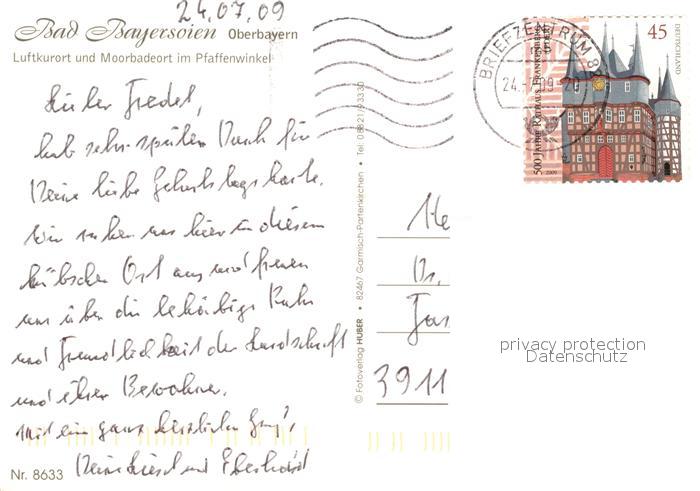 24.07.09
Bad Bayersoien Oberbayern
Luftkurort und Moorbadeort im Pfaffenwinkel
Lieber Fredel,
hab sehr späten Dank für
Deine liebe Geburtstagskarte.
Wir ruhen uns hier in diesem
hübschen Ort aus und freuen
uns über die behäbige Ruhe
und Freundlichkeit der Landschaft
und ihrer Bewohner.
Mit ein ganz herzlichen Gruß
Deine Liesel und Eberhard
Nr. 8633
© Fotoverlag HUBER • 82467 Garmisch-Partenkirchen • Tel: 08821/93330
He
Dr.
3911
BRIEFZENTRUM 8
24.-7.09-20
500 JAHRE RATHAUS FRANKENBERG
EDER
2009
45
DEUTSCHLAND
privacy protection
Datenschutz